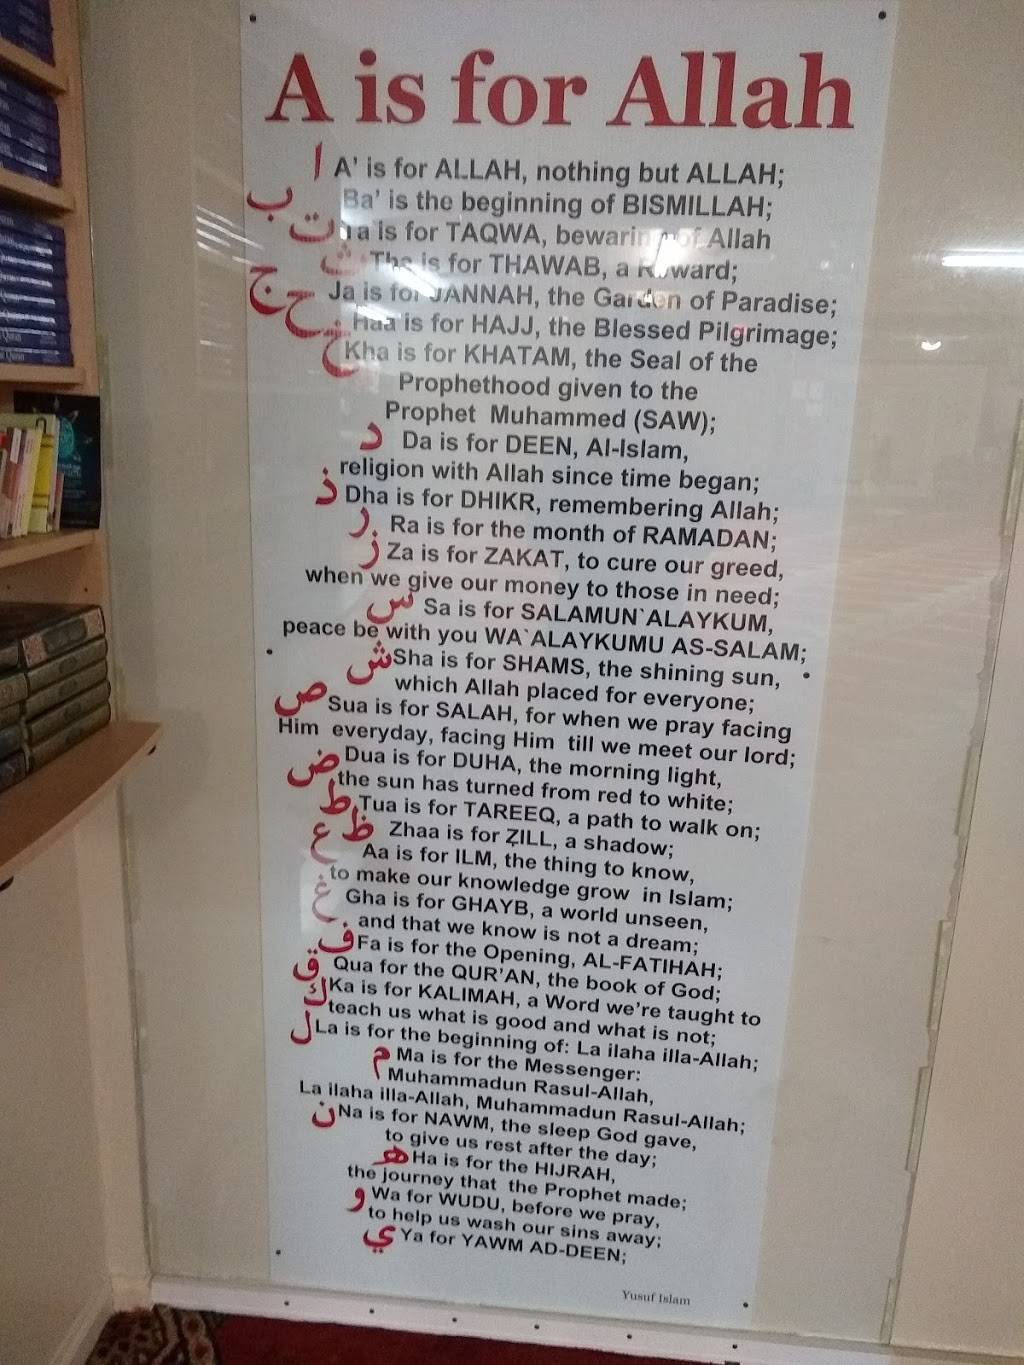 A is for Allah
ا A' is for ALLAH, nothing but ALLAH;
ب Ba' is the beginning of BISMILLAH;
ت Ta is for TAQWA, bewaring of Allah
ث Tha is for THAWAB, a Reward;
ج Ja is for JANNAH, the Garden of Paradise;
ح Haa is for HAJJ, the Blessed Pilgrimage;
خ Kha is for KHATAM, the Seal of the
Prophethood given to the
Prophet Muhammed (SAW);
د Da is for DEEN, Al-Islam,
religion with Allah since time began;
ذ Dha is for DHIKR, remembering Allah;
ر Ra is for the month of RAMADAN;
ز Za is for ZAKAT, to cure our greed,
when we give our money to those in need;
س Sa is for SALAMUN`ALAYKUM,
peace be with you WA`ALAYKUMU AS-SALAM;
ش Sha is for SHAMS, the shining sun,
which Allah placed for everyone;
ص Sua is for SALAH, for when we pray facing
Him everyday, facing Him till we meet our lord;
ض Dua is for DUHA, the morning light,
the sun has turned from red to white;
ط Tua is for TAREEQ, a path to walk on;
ظ Zhaa is for ẒILL, a shadow;
ع Aa is for ILM, the thing to know,
to make our knowledge grow in Islam;
غ Gha is for GHAYB, a world unseen,
and that we know is not a dream;
ف Fa is for the Opening, AL-FATIHAH;
ق Qua for the QUR'AN, the book of God;
ك Ka is for KALIMAH, a Word we're taught to
teach us what is good and what is not;
ل La is for the beginning of: La ilaha illa-Allah;
م Ma is for the Messenger:
Muhammadun Rasul-Allah,
La ilaha illa-Allah, Muhammadun Rasul-Allah;
ن Na is for NAWM, the sleep God gave,
to give us rest after the day;
ه Ha is for the HIJRAH,
the journey that the Prophet made;
و Wa for WUDU, before we pray,
to help us wash our sins away;
ي Ya for YAWM AD-DEEN;
Yusuf Islam